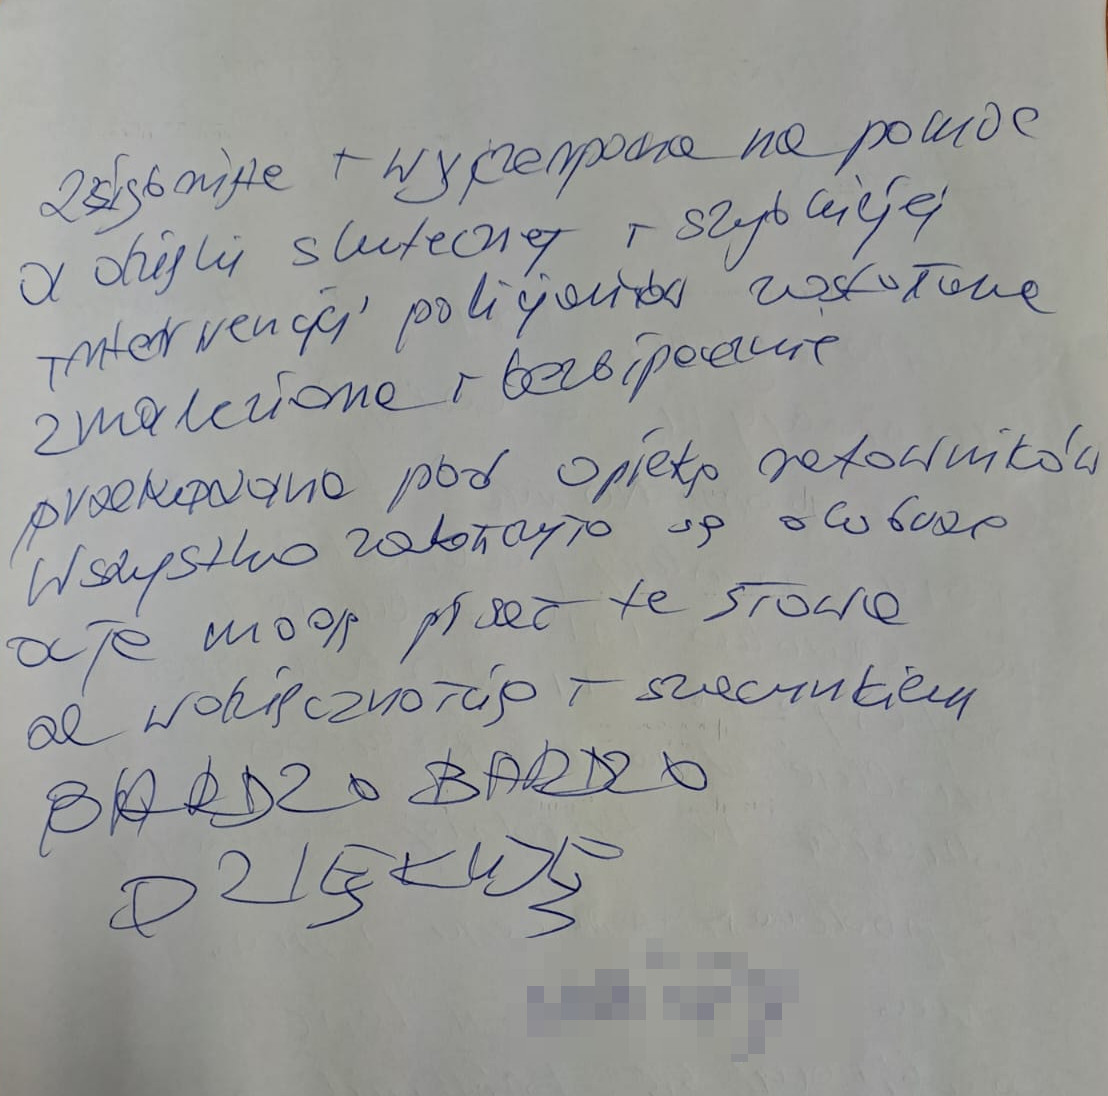 Zziębnięta i wyczerpana na pomoc
a dzięki skutecznej i szybkiej
interwencji policjantów zostałam
znaleziona i bezpiecznie
przekazana pod opiekę ratowników
Wszystko zakończyło się dobrze
a ja mogę pisać te słowa
z wdzięcznością i szacunkiem
BARDZO BARDZO
DZIĘKUJĘ